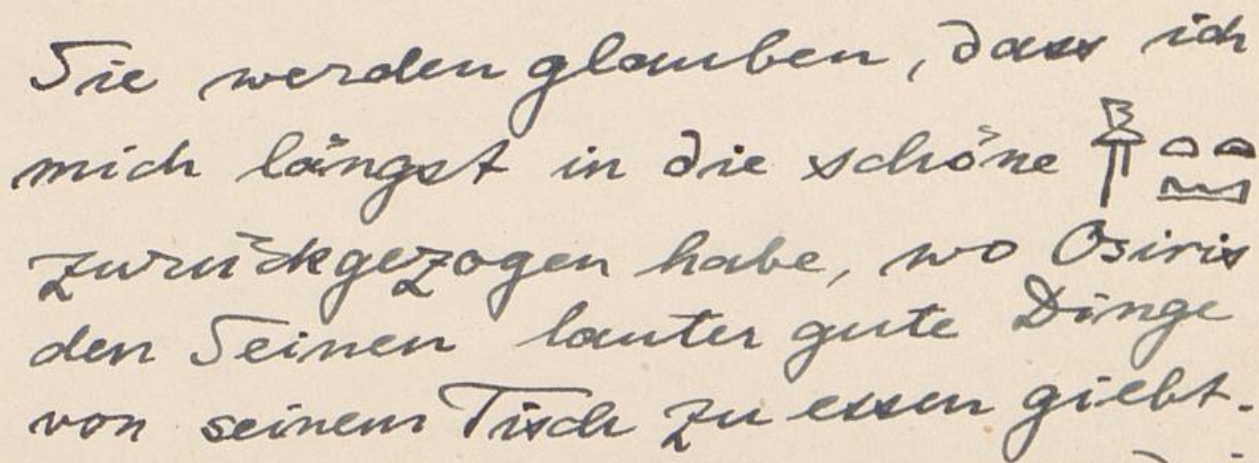 Sie werden glauben, dass ich
mich längst in die schöne 𓋀𓏏𓏏𓈉
zurückgezogen habe, wo Osiris
den Seinen lauter gute Dinge
von seinem Tisch zu essen giebt.